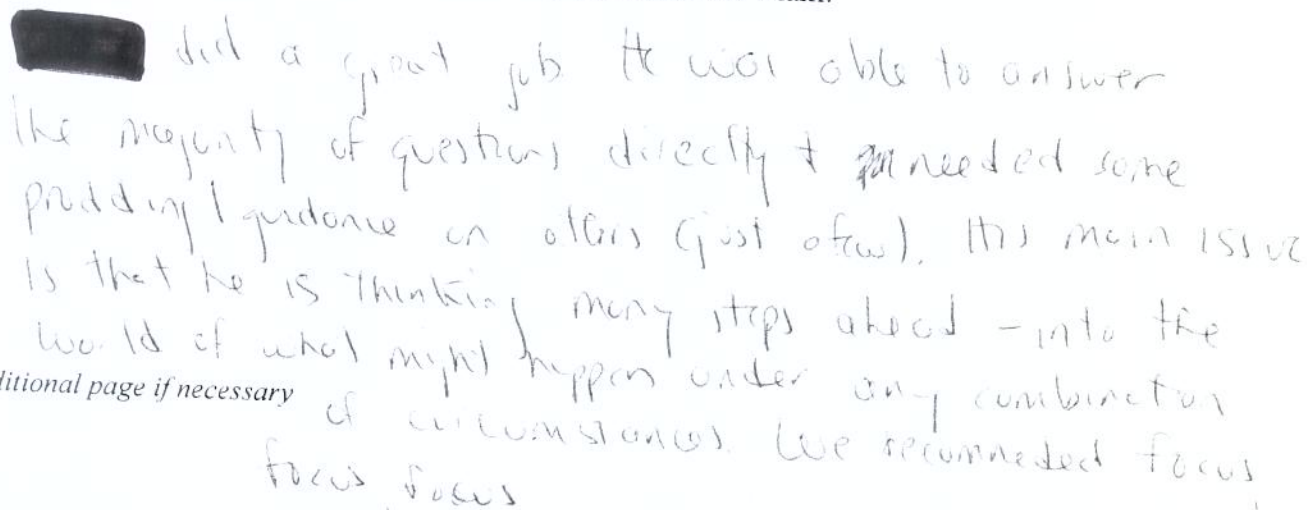 did a great job. He was able to answer
the majority of questions directly + needed some
prodding / guidance on others (just a few). His main issue
is that he is thinking many steps ahead - into the
world of what might happen under any combination
ditional page if necessary
of circumstances. We recommeded focus,
focus, focus